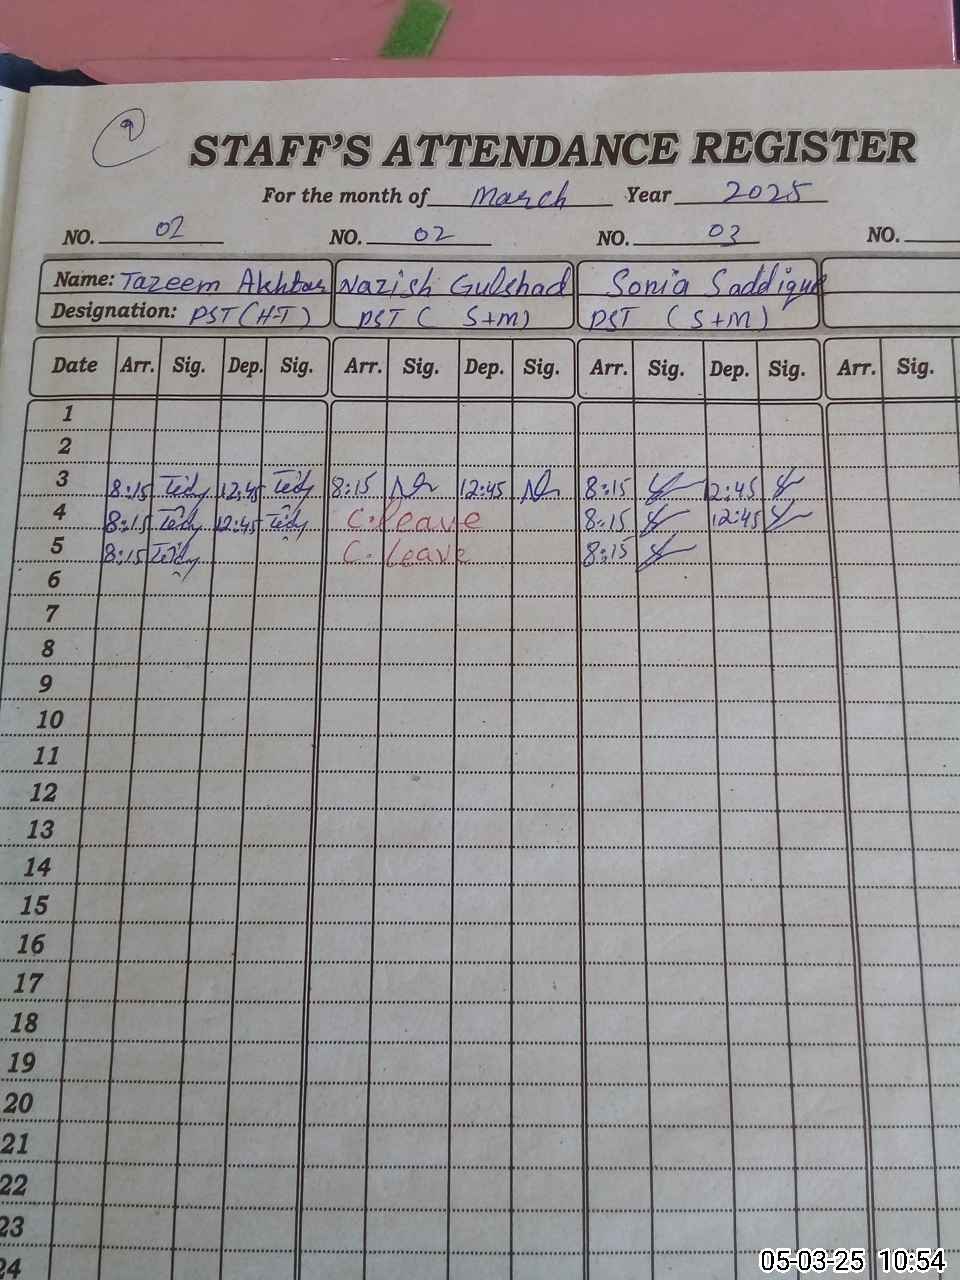 STAFF'S ATTENDANCE REGISTER
For the month of March Year 2025
NO. 02 NO. 02 NO. 03 NO.
Name: Tazeem Akhtar Nazish Gulshad Sonia Saddique
Designation: PST (H-T) PST ( S+M) PST ( S+M)
Date Arr. Sig. Dep. Sig. Arr. Sig. Dep. Sig. Arr. Sig. Dep. Sig. Arr. Sig.
1
2
3 8:15 12:45 8:15 12:45 8:15 12:45
4 8:15 12:45 C. leave 8:15 12:45
5 8:15 C. leave 8:15
6
7
8
9
10
11
12
13
14
15
16
17
18
19
20
21
22
23
24
05-03-25 10:54